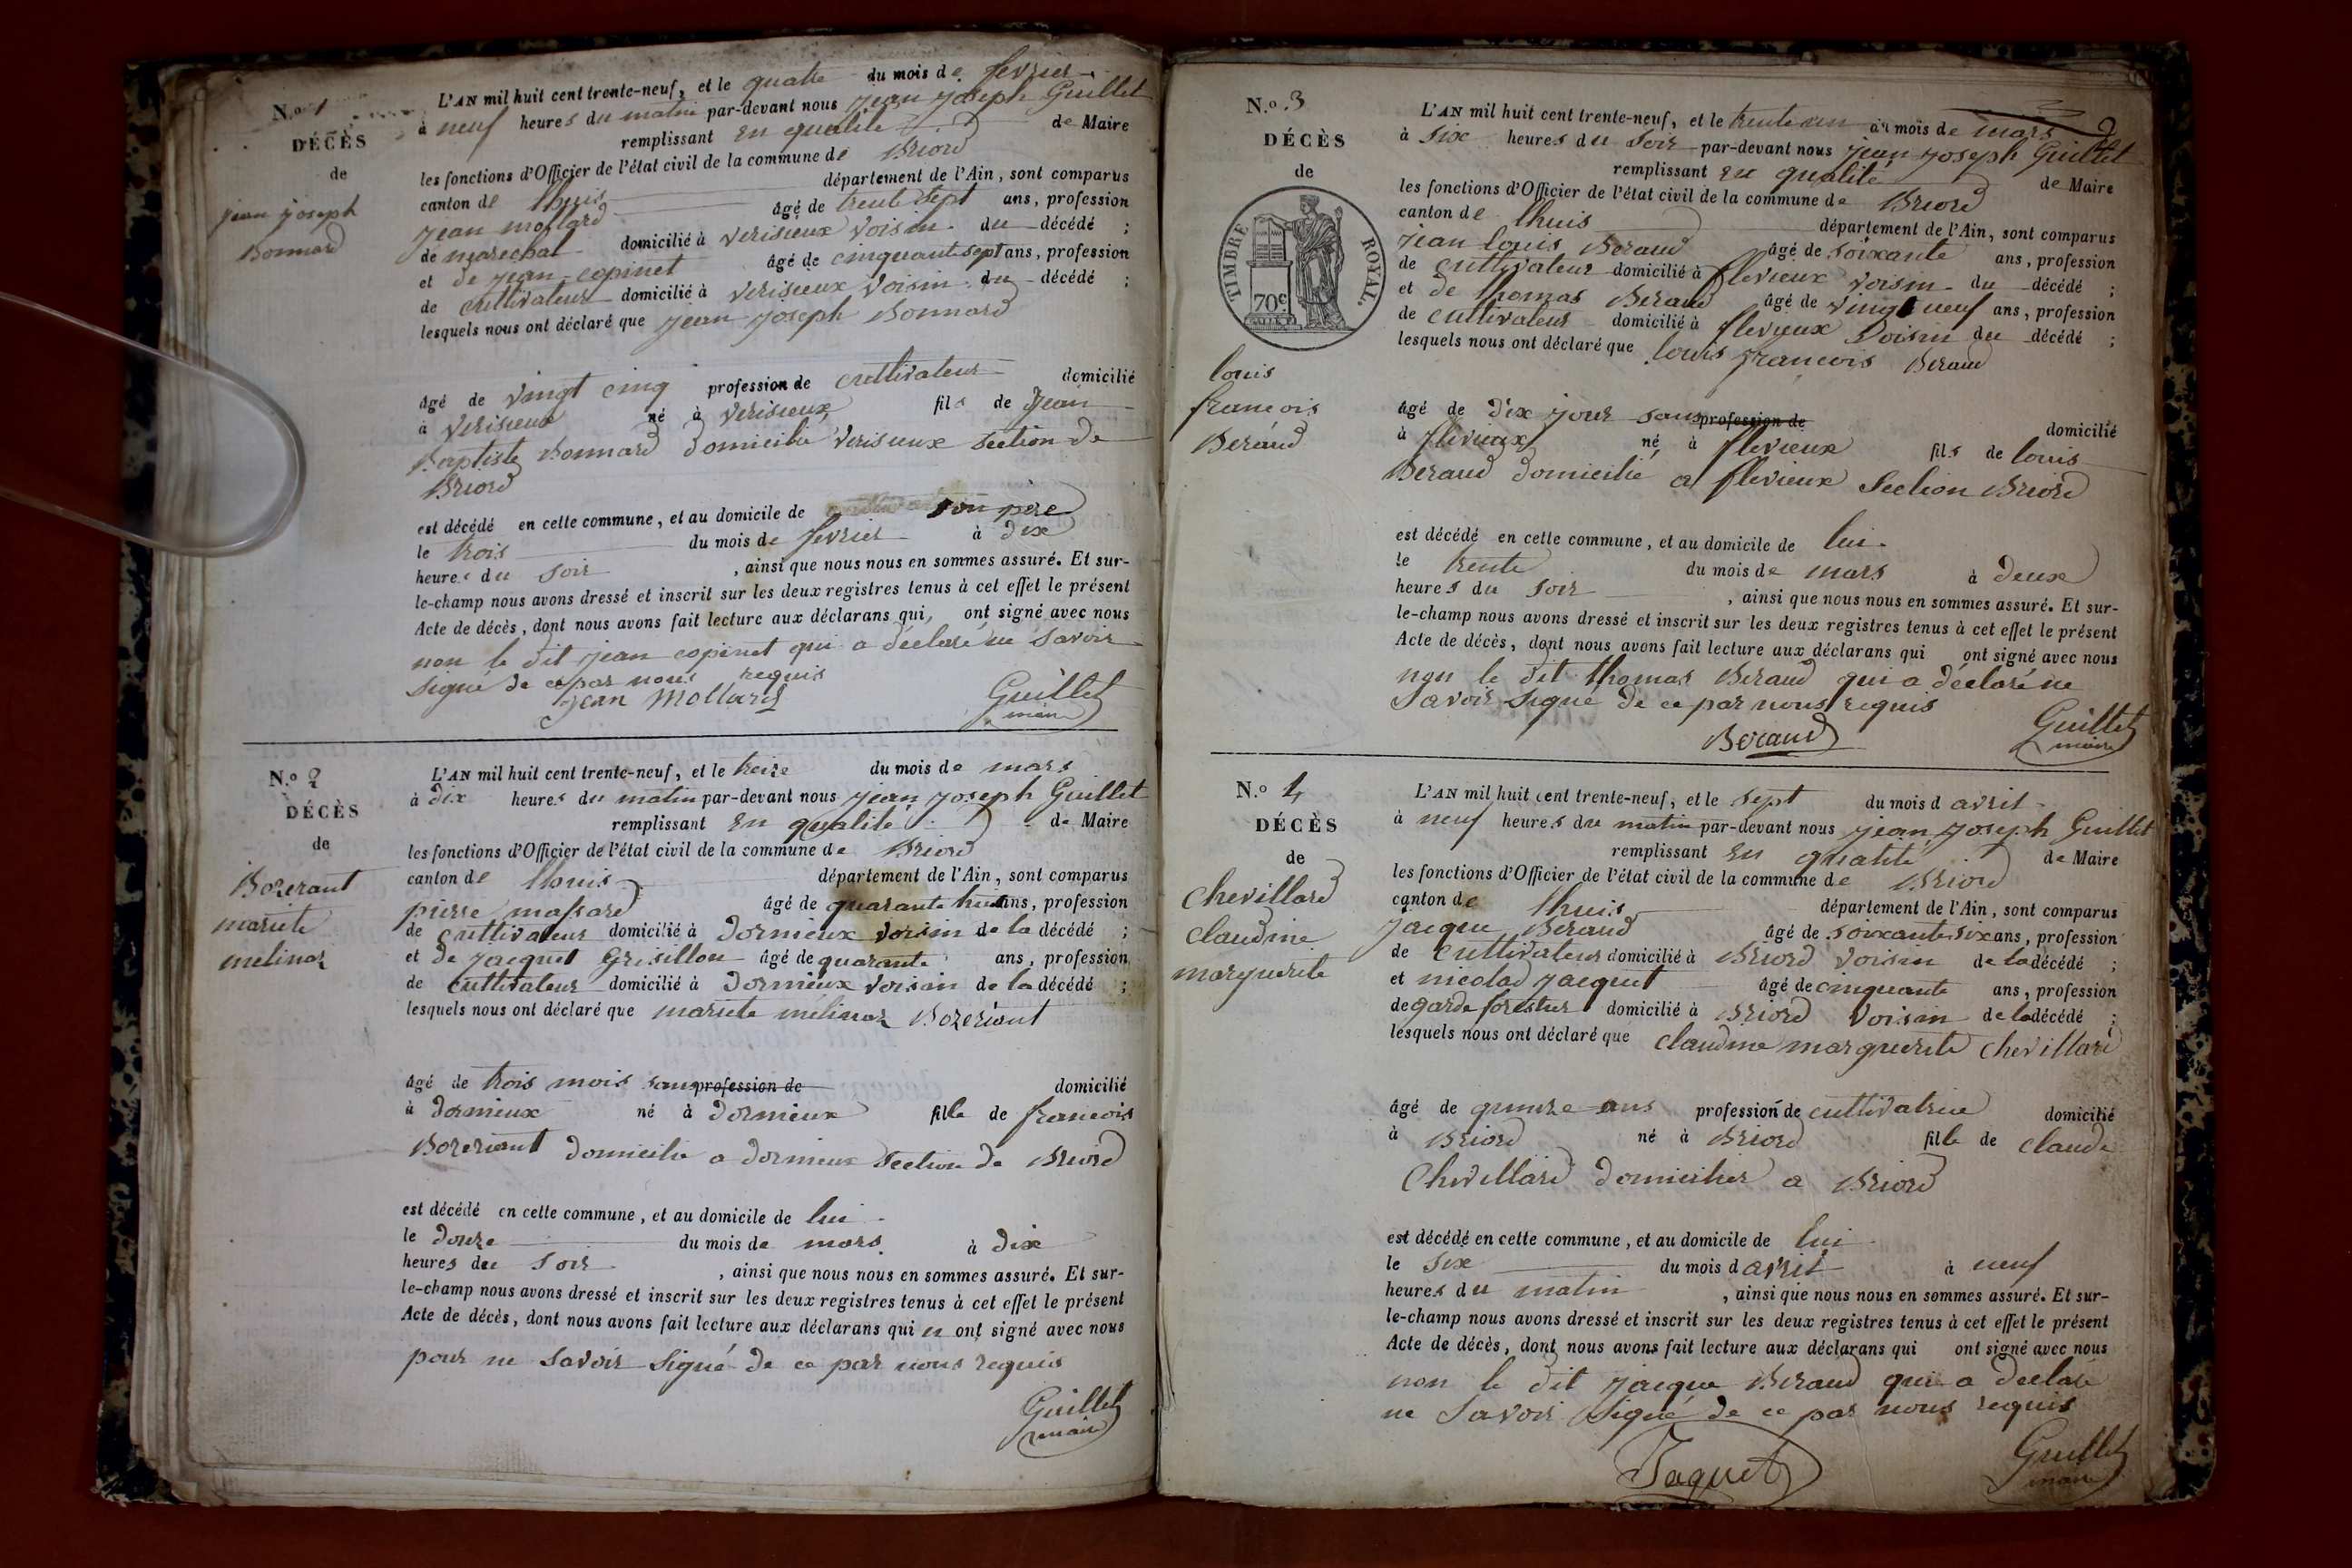 N.o 1
DÉCÈS
de
jean joseph
Bonnard
L'AN mil huit cent trente-neuf, et le quatre du mois de fevrier
à neuf heures du matin par-devant nous jean joseph Guillet
remplissant en qualité de Maire
les fonctions d'Officier de l'état civil de la commune de Briord
canton de lhuis département de l'Ain, sont comparus
jean mollard âgé de trente sept ans, profession
de marechal domicilié à Verisieux voisin du décédé ;
et de jean copinet âgé de cinquante sept ans, profession
de cultivateur domicilié à Verisieux voisin du décédé ;
lesquels nous ont déclaré que jean joseph Bonnard
âgé de vingt cinq profession de cultivateur domicilié
à Verisieux né à Verisieux fils de Jean
Baptiste Bonnard domicilié Verisieux section de
Briord
est décédé en cette commune, et au domicile de son père
le trois du mois de fevrier à dix
heures du soir , ainsi que nous nous en sommes assuré. Et sur-
le-champ nous avons dressé et inscrit sur les deux registres tenus à cet effet le présent
Acte de décès, dont nous avons fait lecture aux déclarans qui, ont signé avec nous
non le dit jean copinet qui a déclaré ne savoir
signé de ce par nous requis
Jean Mollard Guillet
maire
N.o 2
DÉCÈS
de
Bozeriant
mariete
melinaz
L'AN mil huit cent trente-neuf, et le treize du mois de mars
à dix heures du matin par-devant nous jean joseph Guillet
remplissant en qualité de Maire
les fonctions d'Officier de l'état civil de la commune de Briord
canton de lhuis département de l'Ain, sont comparus
pierre massard âgé de quarante huit ans, profession
de cultivateur domicilié à Dornieux voisin de la décédé ;
et de jacquet Grisillon âgé de quarante ans, profession
de cultivateur domicilié à Dornieux voisin de la décédé ;
lesquels nous ont déclaré que mariete mélinaz Bozeriant
âgé de trois mois sans profession de domicilié
à dornieux né à dornieux fille de francois
Bozeriant domicilié a dornieux section de Briord
est décédé en cette commune, et au domicile de lui
le douze du mois de mars à dix
heures du soir , ainsi que nous nous en sommes assuré. Et sur-
le-champ nous avons dressé et inscrit sur les deux registres tenus à cet effet le présent
Acte de décès, dont nous avons fait lecture aux déclarans qui n ont signé avec nous
pour ne savoir signé de ce par nous requis
Guillet
maire
N.o 3
DÉCÈS
de
TIMBRE ROYAL.
70c
louis
francois
Beraud
L'AN mil huit cent trente-neuf, et le trente un du mois de mars
à six heures du soir par-devant nous jean joseph Guillet
remplissant en qualité de Maire
les fonctions d'Officier de l'état civil de la commune de Briord
canton de lhuis département de l'Ain, sont comparus
jean louis Beraud âgé de soixante ans, profession
de cultivateur domicilié à flevieux voisin du décédé ;
et de thomas Beraud âgé de vingt neuf ans, profession
de cultivateur domicilié à flevieux voisin du décédé ;
lesquels nous ont déclaré que louis francois Beraud
âgé de dix jour sans profession de domicilié
à flevieux né à flevieux fils de louis
Beraud domicilié a flevieux section Briord
est décédé en cette commune, et au domicile de lui
le trente du mois de mars à deux
heures du soir , ainsi que nous nous en sommes assuré. Et sur-
le-champ nous avons dressé et inscrit sur les deux registres tenus à cet effet le présent
Acte de décès, dont nous avons fait lecture aux déclarans qui ont signé avec nous
non le dit thomas Beraud qui a déclaré ne
savoir signé de ce par nous requis
Beraud Guillet
maire
N.o 4
DÉCÈS
de
Chevillard
claudine
marguerite
L'AN mil huit cent trente-neuf, et le sept du mois d avril
à neuf heures du matin par-devant nous jean joseph Guillet
remplissant en qualité de Maire
les fonctions d'Officier de l'état civil de la commune de Briord
canton de lhuis département de l'Ain, sont comparus
jacque Beraud âgé de soixante six ans, profession
de cultivateur domicilié à Briord voisin de la décédé ;
et nicolad jacquet âgé de cinquante ans, profession
de garde forestier domicilié à Briord voisin de la décédé ;
lesquels nous ont déclaré que claudine marguerite chevillard
âgé de quinze ans profession de cultivatrice domicilié
à Briord né à Briord fille de claude
Chevillard domicilier a Briord
est décédé en cette commune, et au domicile de lui
le six du mois d avril à neuf
heures du matin , ainsi que nous nous en sommes assuré. Et sur-
le-champ nous avons dressé et inscrit sur les deux registres tenus à cet effet le présent
Acte de décès, dont nous avons fait lecture aux déclarans qui ont signé avec nous
non le dit jacque Beraud qui a declaré
ne savoir signé de ce par nous requis
Jaquet Guillet
maire